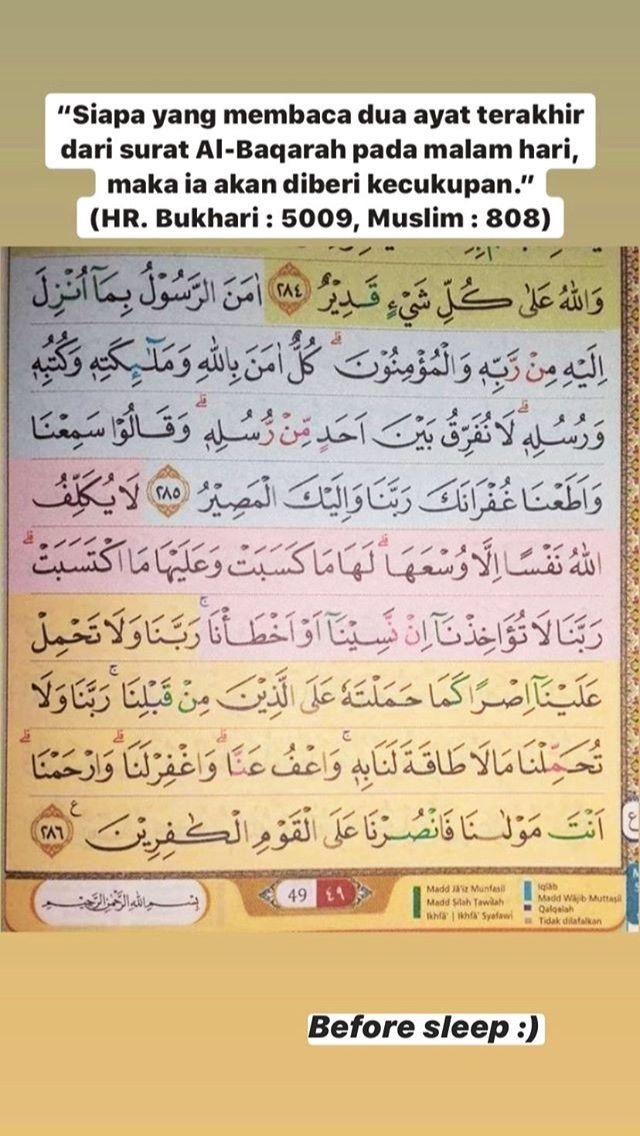 “Siapa yang membaca dua ayat terakhir
dari surat Al-Baqarah pada malam hari,
maka ia akan diberi kecukupan.”
(HR. Bukhari : 5009, Muslim : 808)
وَاللّٰهُ عَلٰى كُلِّ شَيْءٍ قَدِيْرٌ ٢٨٤ اٰمَنَ الرَّسُوْلُ بِمَآ اُنْزِلَ
اِلَيْهِ مِنْ رَّبِّهٖ وَالْمُؤْمِنُوْنَۗ كُلٌّ اٰمَنَ بِاللّٰهِ وَمَلٰۤىِٕكَتِهٖ وَكُتُبِهٖ
وَرُسُلِهٖۗ لَا نُفَرِّقُ بَيْنَ اَحَدٍ مِّنْ رُّسُلِهٖۗ وَقَالُوْا سَمِعْنَا
وَاَطَعْنَا غُفْرَانَكَ رَبَّنَا وَاِلَيْكَ الْمَصِيْرُ ٢٨٥ لَا يُكَلِّفُ
اللّٰهُ نَفْسًا اِلَّا وُسْعَهَاۗ لَهَا مَا كَسَبَتْ وَعَلَيْهَا مَا اكْتَسَبَتْۗ
رَبَّنَا لَا تُؤَاخِذْنَآ اِنْ نَّسِيْنَآ اَوْ اَخْطَأْنَاۚ رَبَّنَا وَلَا تَحْمِلْ
عَلَيْنَآ اِصْرًا كَمَا حَمَلْتَهٗ عَلَى الَّذِيْنَ مِنْ قَبْلِنَاۚ رَبَّنَا وَلَا
تُحَمِّلْنَا مَا لَا طَاقَةَ لَنَا بِهٖۚ وَاعْفُ عَنَّاۗ وَاغْفِرْ لَنَاۗ وَارْحَمْنَاۗ
اَنْتَ مَوْلٰىنَا فَانْصُرْنَا عَلَى الْقَوْمِ الْكٰفِرِيْنَ ࣖ ٢٨٦
بِسْمِ اللّٰهِ الرَّحْمٰنِ الرَّحِيْمِ
49 ٤٩
Madd Jā'iz Munfaṣil
Madd Ṣilah Ṭawīlah
Ikhfā' | Ikhfā' Syafawī
Iqlāb
Madd Wājib Muttaṣil
Qalqalah
Tidak dilafalkan
ع
Before sleep :)